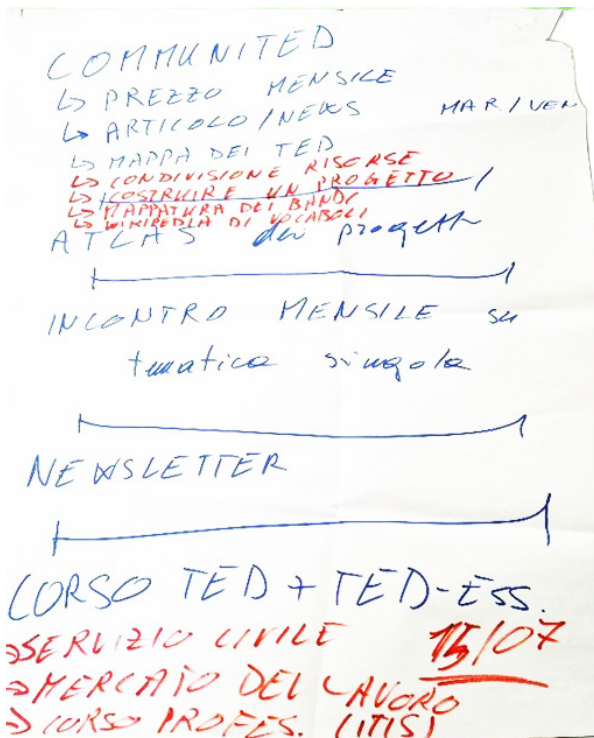 COMMUNITED
↳ PREZZO MENSILE
↳ ARTICOLO/NEWS MAR/VEN
↳ MAPPA DEI TED
↳ CONDIVISIONE RISORSE
↳ COSTRUIRE UN PROGETTO
↳ MAPPATURA DEI BANDI
↳ WIKIPEDIA DI VOCABOLI
ATLAS dei progetti
INCONTRO MENSILE su
tematica singola
NEWSLETTER
CORSO TED + TED-ESS.
→SERVIZIO CIVILE 15/07
→MERCATO DEL LAVORO
→CORSO PROFES. (ITIS)